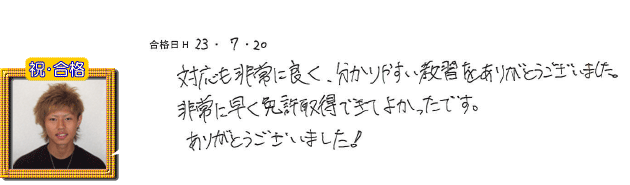 合格日 H 23・7・20
祝・合格
対応も非常に良く、分かりやすい教習をありがとうございました。
非常に早く免許取得できてよかったです。
ありがとうございました!